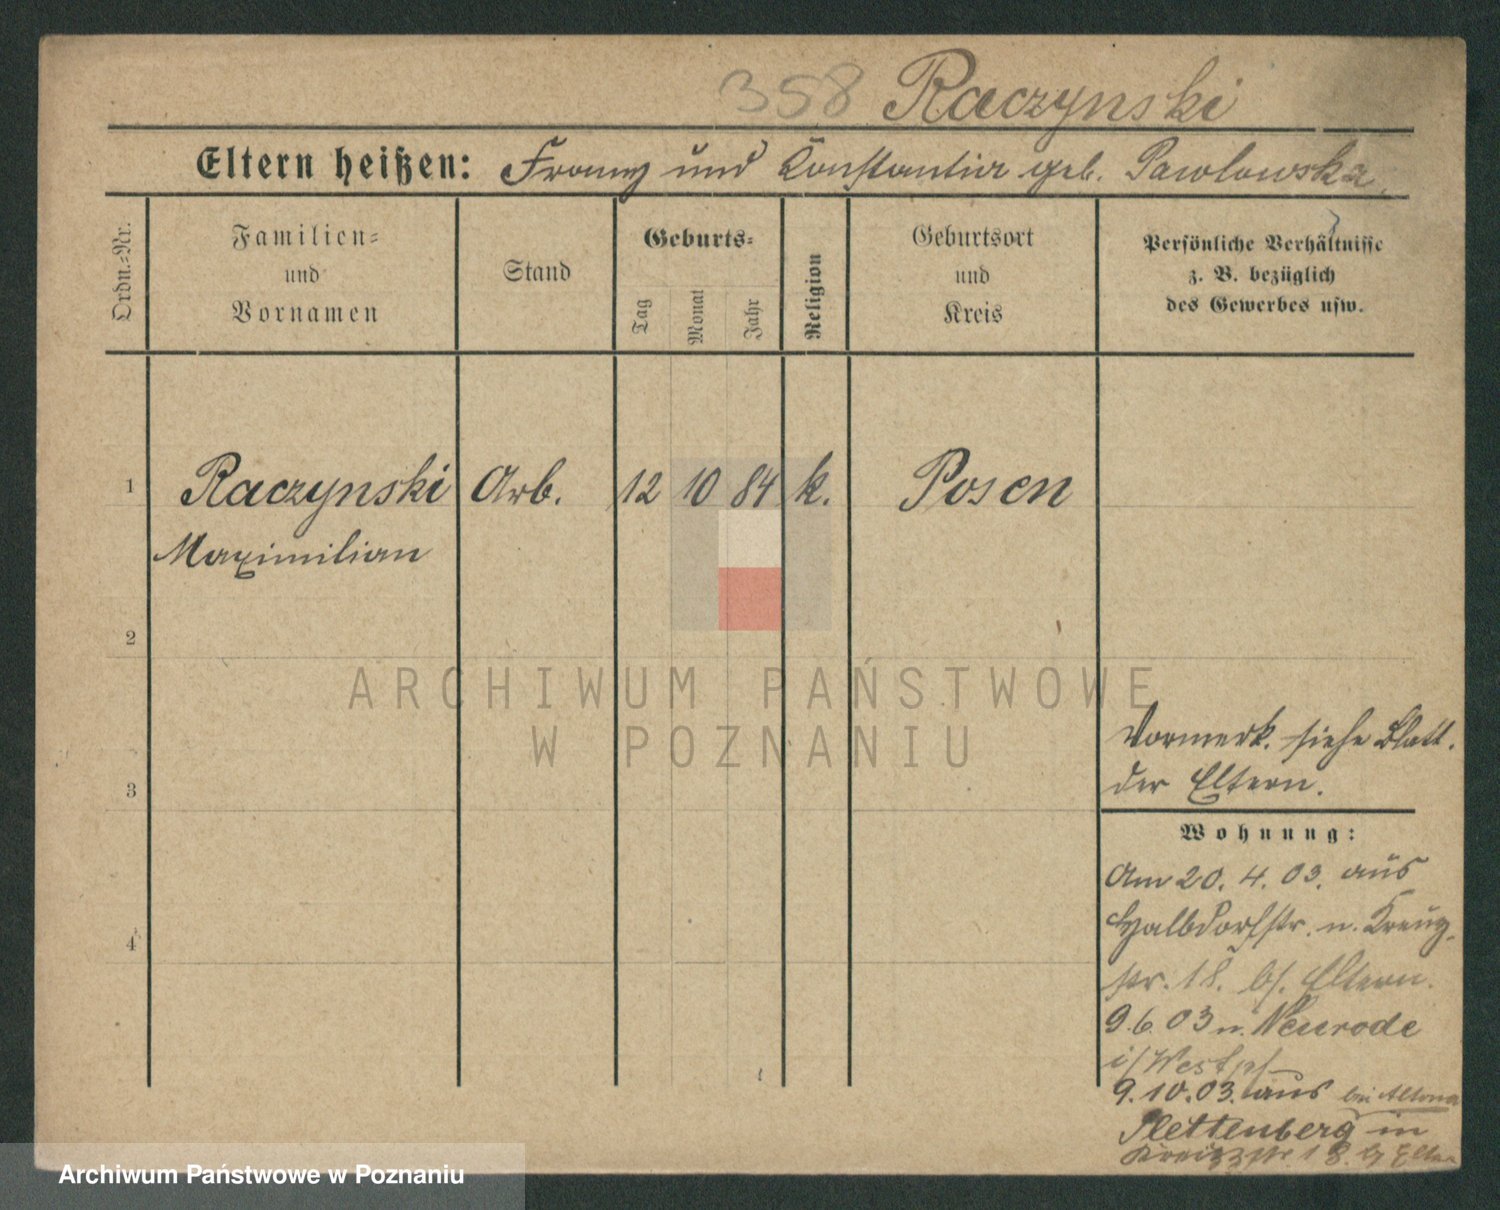 358 Raczynski
Eltern heißen: Franz und Konstantia geb. Pawlowska.
Ordn.-Nr.
Familien-
und
Vornamen
Stand
Geburts-
Tag
Monat
Jahr
Religion
Geburtsort
und
Kreis
Persönliche Verhältnisse
z. B. bezüglich
des Gewerbes usw.
1 Raczynski Arb. 12 10 84 k. Posen
Maximilian
2
3
4
Vormerk. siehe Blatt.
der Eltern.
Wohnung:
Am 20. 4. 03. aus
Halbdorfstr. n. Kreuz-
str. 18. b/. Eltern.
9.6.03 n. Neurode
i/Westpf
9.10.03. aus bei Altona
Plettenberg in
18.
ARCHIWUM PAŃSTWOWE
W POZNANIU
Archiwum Państwowe w Poznaniu